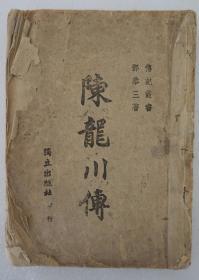 傳記叢書
鄧恭三著
陳龍川傳
獨立出版社印行